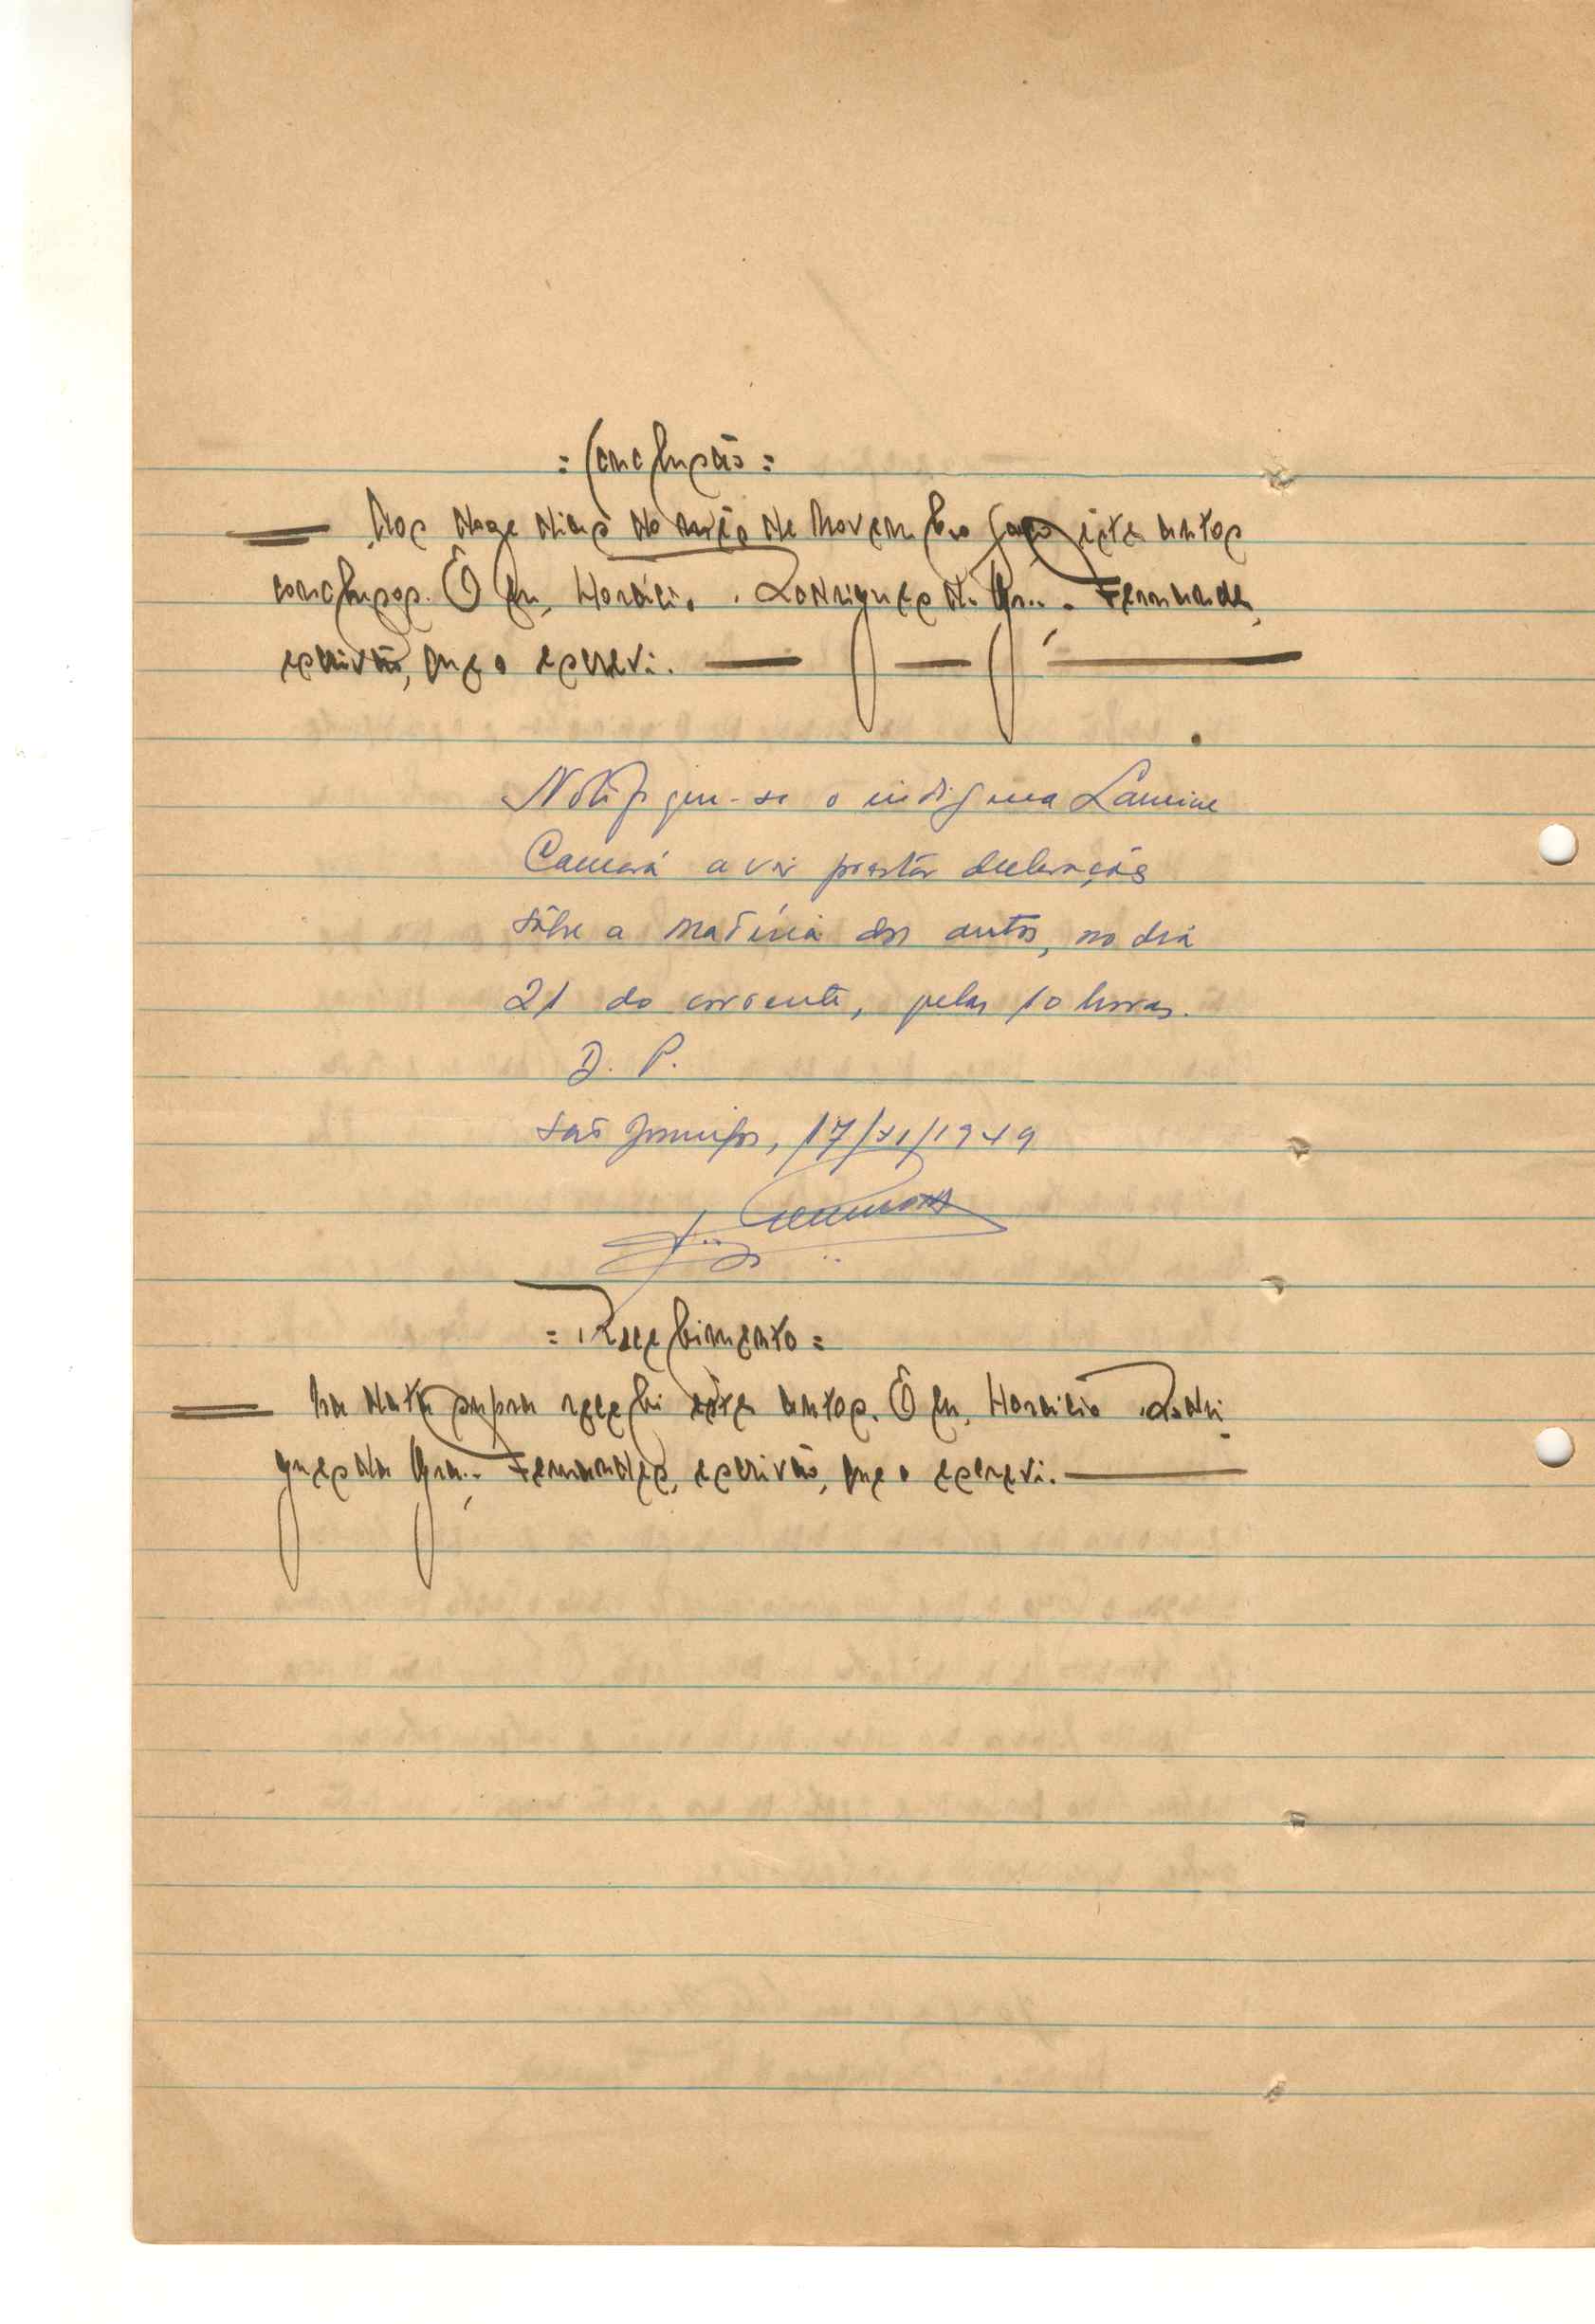 = Conclusão =
Aos doze dias do mês de Novembro faço êstes autos
conclusos. E eu, Horácio Rodrigues da Fernandes,
escrivão, que o escrevi.
Notifique-se o indígena Lamine
Camará a vir prestar declarações
sôbre a matéria dos autos, no dia
21 do corrente, pelas 10 horas.
D. P.
São Domingos, 17/XI/1949
= Recebimento =
Na data supra recebi êstes autos. E eu, Horácio Rodri-
gues da Fernandes, escrivão, que o escrevi.